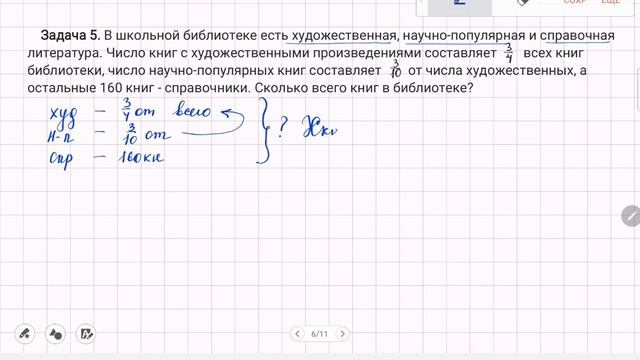 Задача 5. В школьной библиотеке есть художественная, научно-популярная и справочная
литература. Число книг с художественными произведениями составляет 3/4 всех книг
библиотеки, число научно-популярных книг составляет 3/10 от числа художественных, а
остальные 160 книг - справочники. Сколько всего книг в библиотеке?
худ — 3/4 от всего
н-п — 3/10 от } ? Х кн
спр — 160 кн
6/11